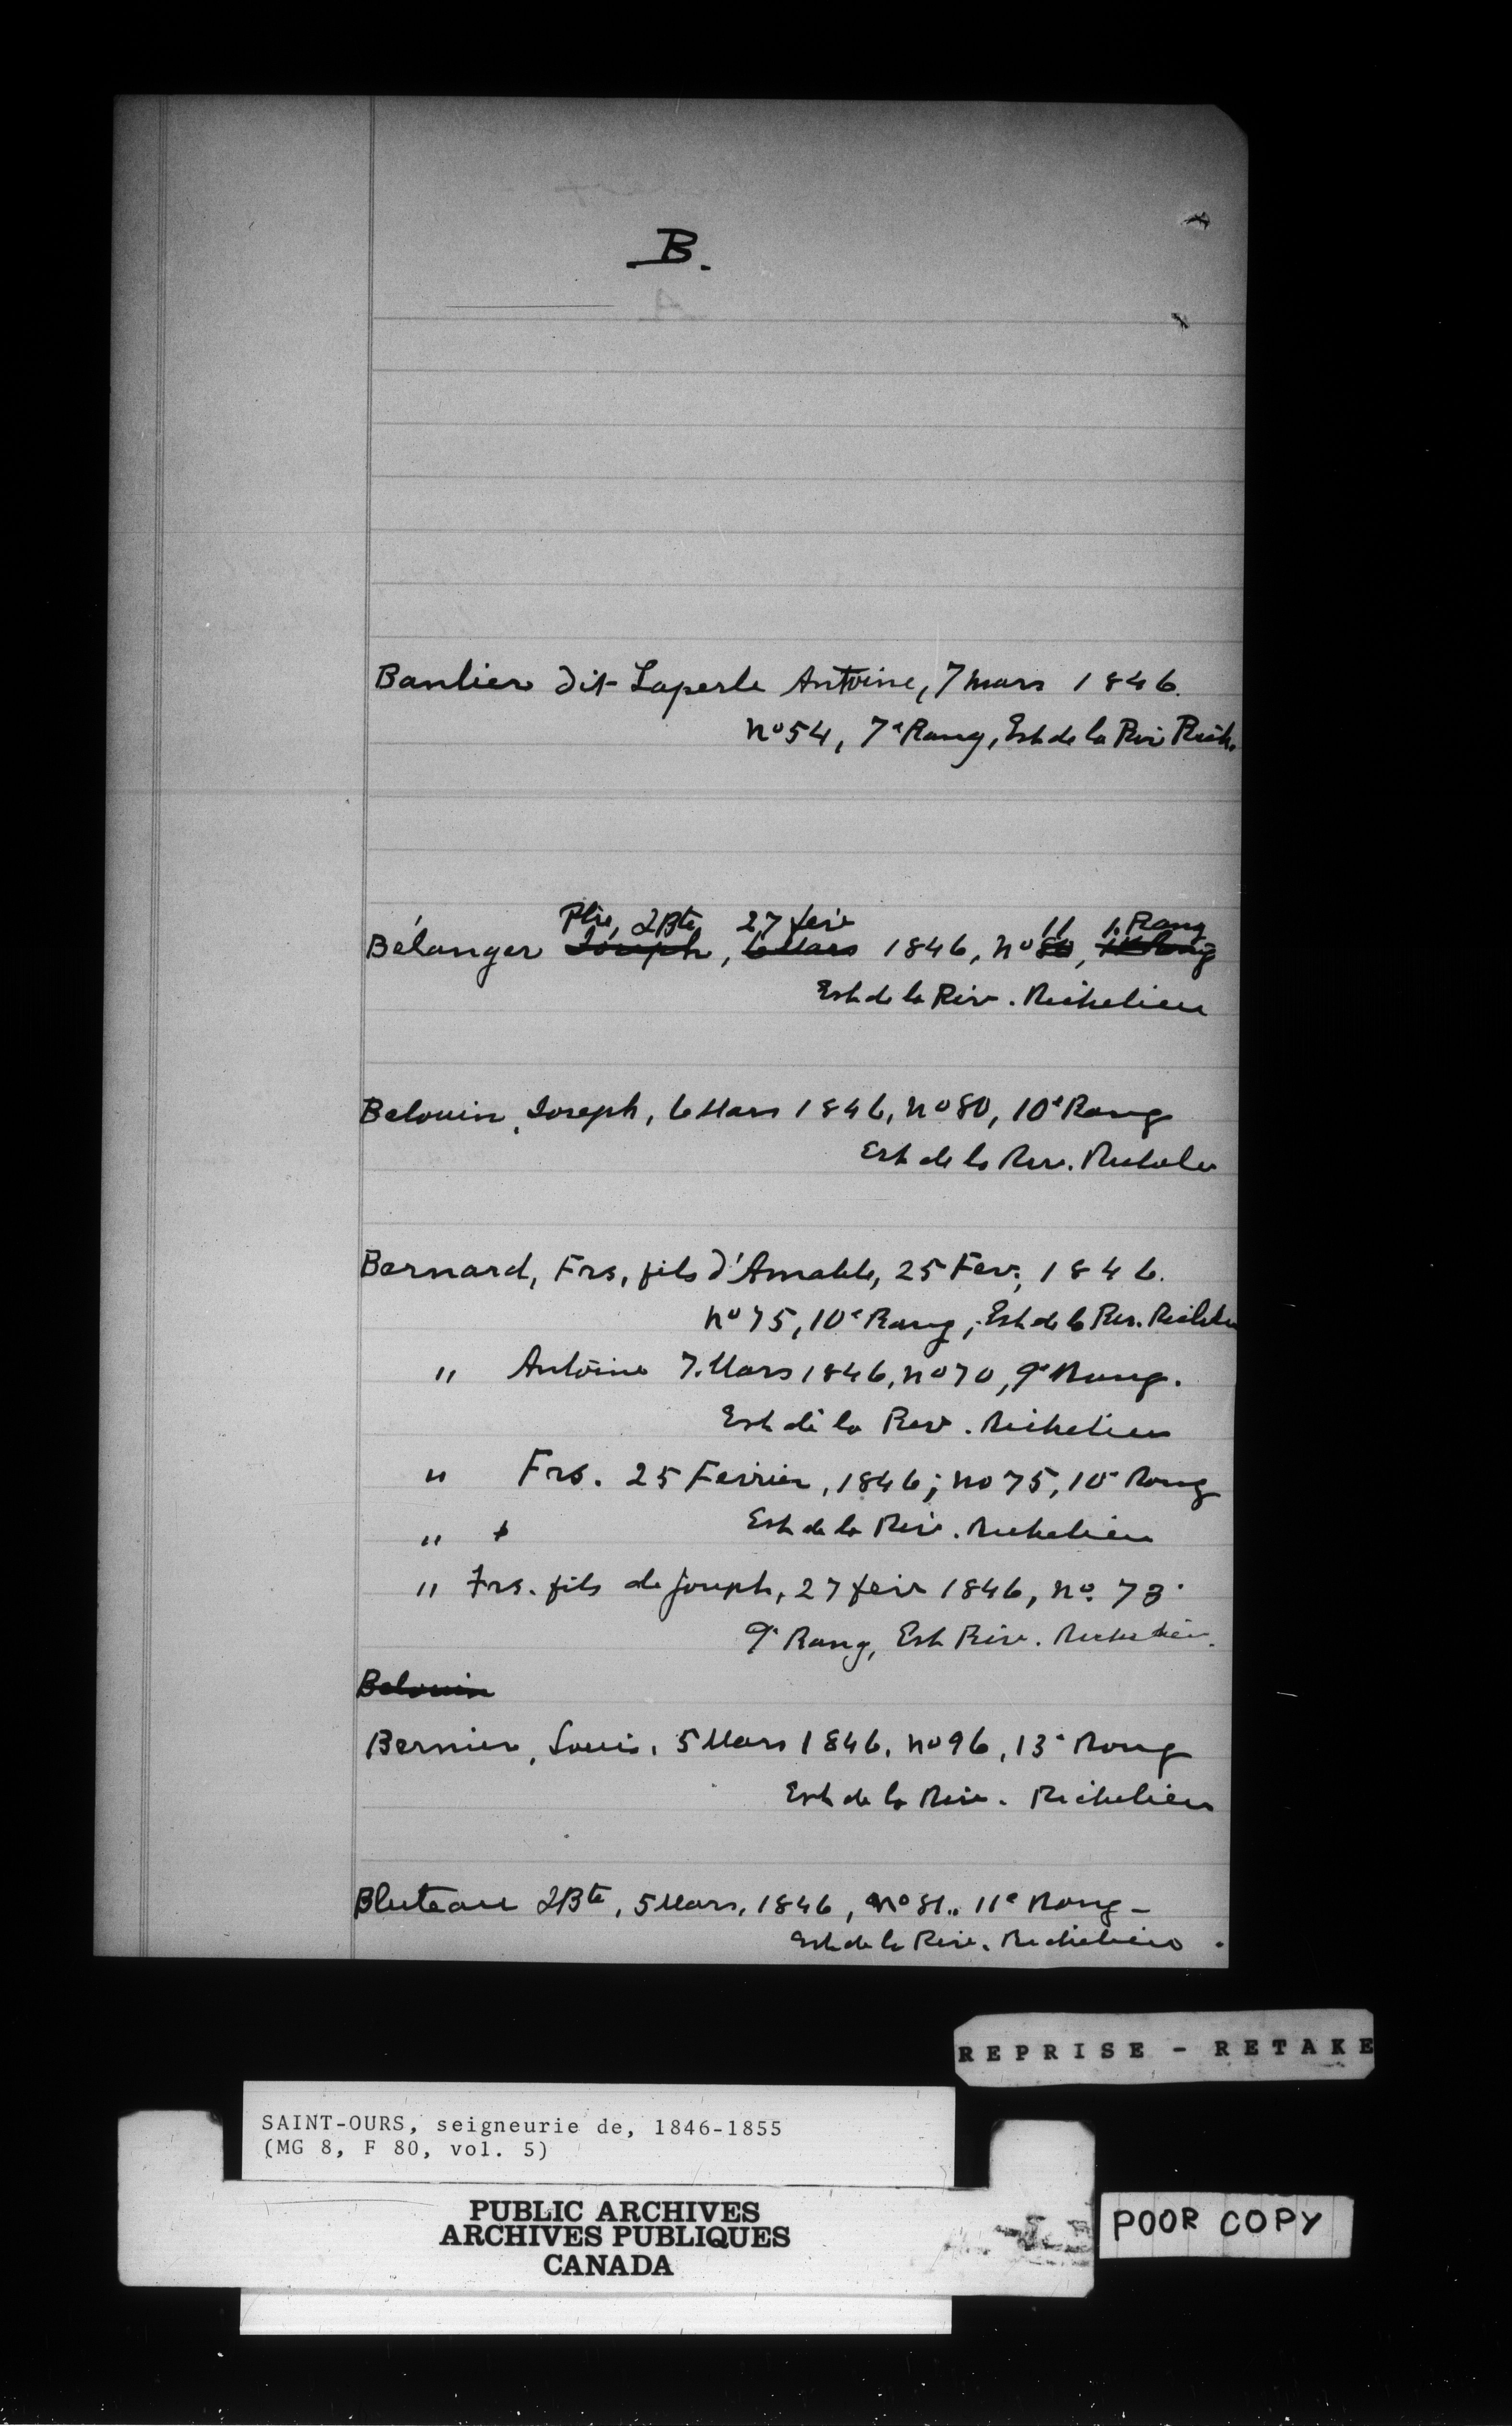 B.
Banlier dit Laperle Antoine, 7 mars 1846.
no 54, 7e Rang, Est de la Riv Rich.
Ptre, JBte 27 fév 11 1. Rang
Bélanger Joseph, 6 Mars 1846, no 80,
Est de la Riv. Richelieu
Belouin, Joseph, 6 Mars 1846, no 80, 10e Rang
Est de la Riv. Richelieu
Bernard, Frs, fils d'Amable, 25 Fev, 1846.
no 75, 10e Rang, Est de la Riv. Richelieu
" Antoine 7. Mars 1846, no 70, 9e Rang.
Est de la Riv. Richelieu
" Frs. 25 Fevrier, 1846; no 75, 10e Rang
" Est de la Riv. Richelieu
" Frs. fils de Joseph, 27 fev 1846, no. 73
9e Rang, Est Riv. Richelieu.
Belouin
Bernier, Louis, 5 Mars 1846, no 96, 13e Rang
Est de la Riv. Richelieu
Bluteau JBte, 5 Mars, 1846, no 81, 11e Rang -
Est de la Riv. Richelieu.
REPRISE - RETAKE
SAINT-OURS, seigneurie de, 1846-1855
(MG 8, F 80, vol. 5)
PUBLIC ARCHIVES
ARCHIVES PUBLIQUES
CANADA
POOR COPY